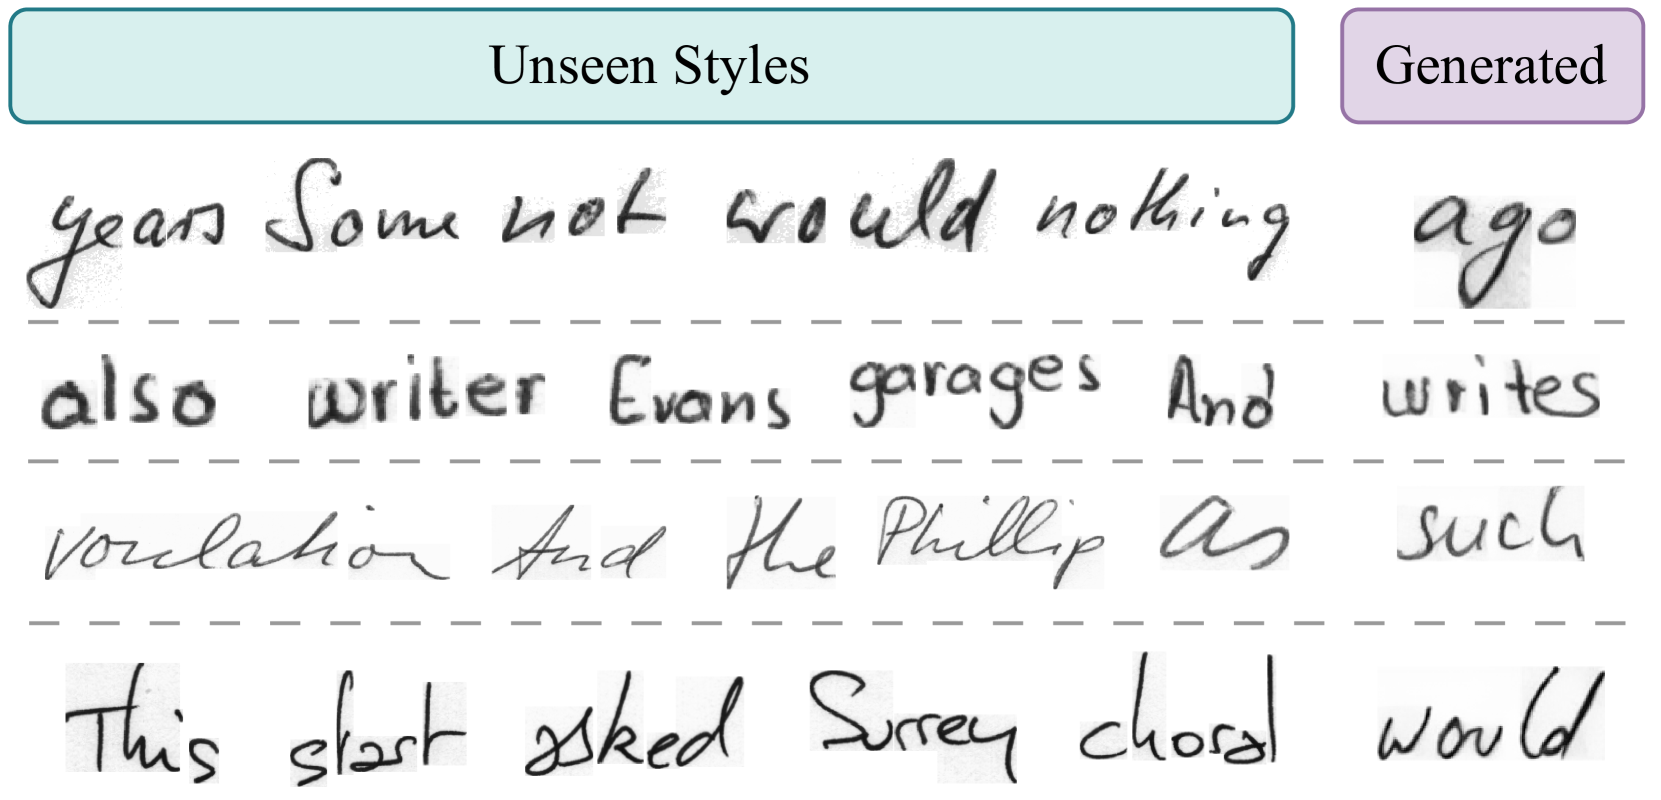 Unseen Styles Generated
years Some not would nothing ago
also writer Evans garages And writes
And the Phillip as such
This start asked Surrey choral would